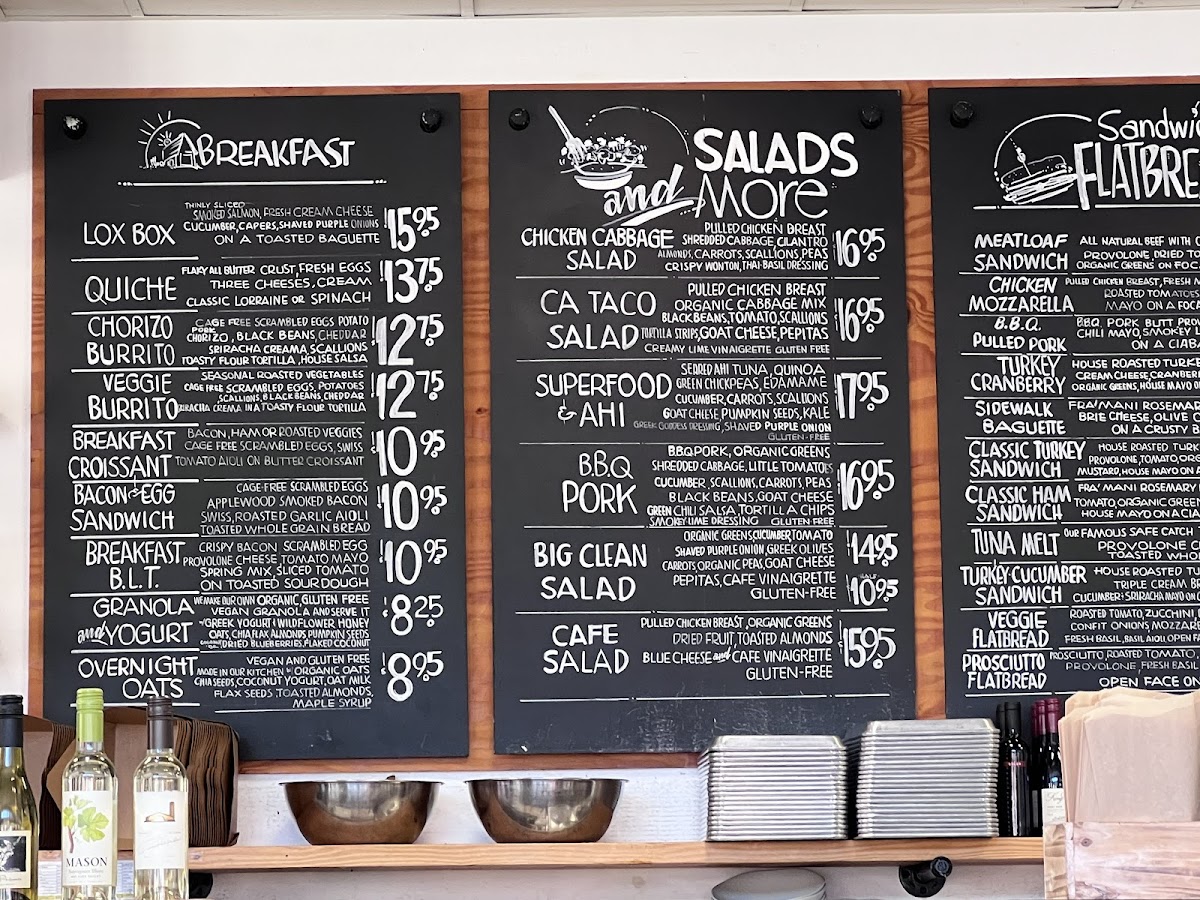 BREAKFAST
LOX BOX
THINLY SLICED
SMOKED SALMON, FRESH CREAM CHEESE
CUCUMBER, CAPERS, SHAVED PURPLE ONIONS
ON A TOASTED BAGUETTE
$15.95
QUICHE
FLAKY ALL BUTTER CRUST, FRESH EGGS
THREE CHEESES, CREAM
CLASSIC LORRAINE OR SPINACH
$13.75
CHORIZO
BURRITO
CAGE FREE SCRAMBLED EGGS POTATO
PORK
CHORIZO, BLACK BEANS, CHEDDAR
SRIRACHA CREMA, SCALLIONS
TOASTY FLOUR TORTILLA, HOUSE SALSA
$12.75
VEGGIE
BURRITO
SEASONAL ROASTED VEGETABLES
CAGE FREE SCRAMBLED EGGS, POTATOES
SCALLIONS, BLACK BEANS, CHEDDAR
SRIRACHA CREMA IN A TOASTY FLOUR TORTILLA
$12.75
BREAKFAST
CROISSANT
BACON, HAM OR ROASTED VEGGIES
CAGE FREE SCRAMBLED EGGS, SWISS
TOMATO AIOLI ON BUTTER CROISSANT
$10.95
BACON & EGG
SANDWICH
CAGE-FREE SCRAMBLED EGGS
APPLEWOOD SMOKED BACON
SWISS, ROASTED GARLIC AIOLI
TOASTED WHOLE GRAIN BREAD
$10.95
BREAKFAST
B.L.T.
CRISPY BACON SCRAMBLED EGG
PROVOLONE CHEESE, TOMATO MAYO
SPRING MIX, SLICED TOMATO
ON TOASTED SOURDOUGH
$10.95
GRANOLA
and YOGURT
WE MAKE OUR OWN ORGANIC, GLUTEN FREE
VEGAN GRANOLA AND SERVE IT
W/ GREEK YOGURT & WILDFLOWER HONEY
OATS, CHIA FLAX ALMONDS PUMPKIN SEEDS
DRIED BLUEBERRIES, FLAKED COCONUT
$8.25
OVERNIGHT
OATS
VEGAN AND GLUTEN FREE
MADE IN OUR KITCHEN W/ ORGANIC OATS
CHIA SEEDS, COCONUT YOGURT, OAT MILK
FLAX SEEDS, TOASTED ALMONDS,
MAPLE SYRUP
$8.95
SALADS
and MORE
CHICKEN CABBAGE
SALAD
PULLED CHICKEN BREAST
SHREDDED CABBAGE, CILANTRO
ALMONDS, CARROTS, SCALLIONS, PEAS
CRISPY WONTON, THAI-BASIL DRESSING
$16.95
CA TACO
SALAD
PULLED CHICKEN BREAST
ORGANIC CABBAGE MIX
BLACK BEANS, TOMATO, SCALLIONS
TORTILLA STRIPS, GOAT CHEESE, PEPITAS
CREAMY LIME VINAIGRETTE GLUTEN FREE
$16.95
SUPERFOOD
& AHI
SEARED AHI TUNA, QUINOA
GREEN CHICKPEAS, EDAMAME
CUCUMBER, CARROTS, SCALLIONS
GOAT CHEESE PUMPKIN SEEDS, KALE
GREEK GODDESS DRESSING, SHAVED PURPLE ONION
GLUTEN-FREE
$17.95
B.B.Q
PORK
B.B.Q PORK, ORGANIC GREENS
SHREDDED CABBAGE, LITTLE TOMATOES
CUCUMBER, SCALLIONS, CARROTS, PEAS
BLACK BEANS, GOAT CHEESE
GREEN CHILI SALSA, TORTILLA CHIPS
SMOKEY LIME DRESSING GLUTEN FREE
$16.95
BIG CLEAN
SALAD
ORGANIC GREENS, CUCUMBER, TOMATO
SHAVED PURPLE ONION, GREEK OLIVES
CARROTS, ORGANIC PEAS, GOAT CHEESE
PEPITAS, CAFE VINAIGRETTE
GLUTEN-FREE
$14.95
HALF
$10.95
CAFE
SALAD
PULLED CHICKEN BREAST, ORGANIC GREENS
DRIED FRUIT, TOASTED ALMONDS
BLUE CHEESE and CAFE VINAIGRETTE
GLUTEN-FREE
$15.95
Sandwi
FLATBRE
MEATLOAF
SANDWICH
ALL NATURAL BEEF WITH
PROVOLONE, DRIED TO
ORGANIC GREENS ON FOC
CHICKEN
MOZZARELLA
PULLED CHICKEN BREAST, FRESH M
ROASTED TOMATOES
MAYO ON A FOCA
B.B.Q.
PULLED PORK
B.B.Q. PORK BUTT PROV
CHILI MAYO, SMOKEY L
ON A CIABA
TURKEY
CRANBERRY
HOUSE ROASTED TURKE
CREAM CHEESE, CRANBER
ORGANIC GREENS, HOUSE MAYO O
SIDEWALK
BAGUETTE
FRA'MANI ROSEMAR
BRIE CHEESE, OLIVE
ON A CRUSTY B
CLASSIC TURKEY
SANDWICH
HOUSE ROASTED TURK
PROVOLONE, TOMATO, ORG
MUSTARD, HOUSE MAYO ON A
CLASSIC HAM
SANDWICH
FRA' MANI ROSEMARY
TOMATO, ORGANIC GREEN
HOUSE MAYO ON A CIA
TUNA MELT
OUR FAMOUS SAFE CATCH
PROVOLONE
TOASTED WHO
TURKEY-CUCUMBER
SANDWICH
HOUSE ROASTED TU
TRIPLE CREAM BR
CUCUMBER, SRIRACHA MAYO ON
VEGGIE
FLATBREAD
ROASTED TOMATO, ZUCCHINI,
CONFIT ONIONS MOZZARE
FRESH BASIL, BASIL AIOLI OPEN FA
PROSCIUTTO
FLATBREAD
PROSCIUTTO, ROASTED TOMATO,
PROVOLONE, FRESH BASIL
OPEN FACE ON
MASON
Sauvignon Blanc